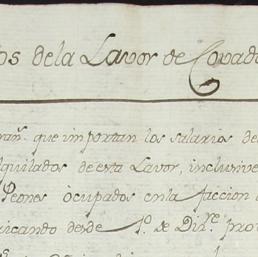 os dela Lavor de Covad
rañ. que importan los salarios de
lquilados de esta Lavor, inclusive
Peones ocupados en la faccion
ricando desde 1º. de Diz.re pro